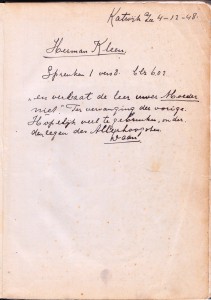 Katwijk a/Zee 4-12-48.
Herman Kleen
Spreuken 1 vers 8. blz 602
"en verlaat de leer uwer Moeder
niet" Ter vervanging der vorige.
Hopelijk veel te gebruiken, onder
den zegen des Allerhoogsten.